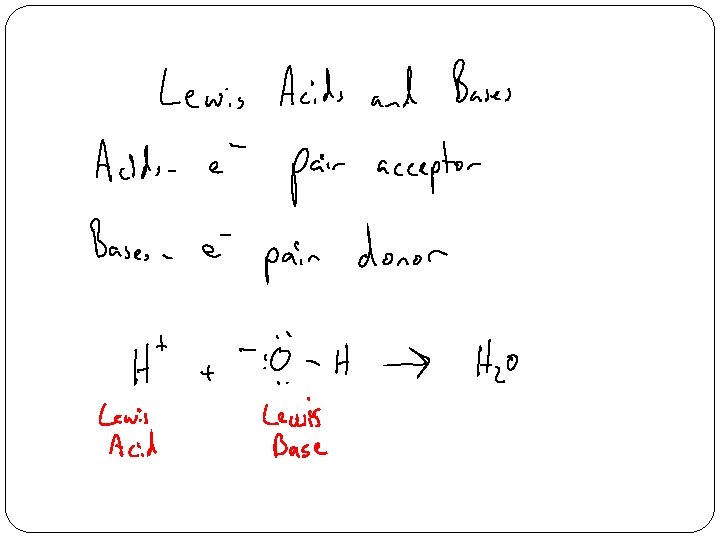 Lewis Acids and Bases
Acids - e⁻ pair acceptor
Bases - e⁻ pair donor
H⁺ + ⁻:Ö̤ - H → H₂O
Lewis Acid
Lewis Base